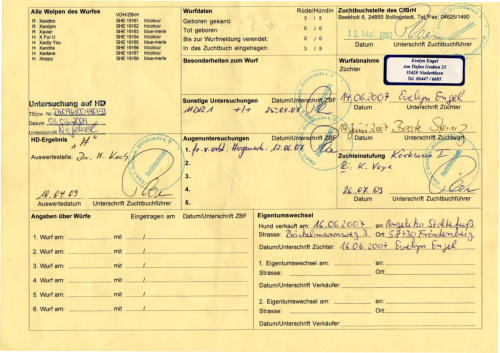 Alle Welpen des Wurfes
VDH/ZBrH
R Xandino SHE 19161 tricolour
R Xandyro SHE 19162 tricolour
R Xavier SHE 19163 blue-merle
H X For U SHE 19164 blue-merle
H Xadly You SHE 19165 blue-merle
H Xandra SHE 19166 tricolour
H Xantana SHE 19167 tricolour
H Xkippy SHE 19168 blue-merle
Wurfdaten Rüde/Hündin
Geboren gesamt: 3 / 5
Tot geboren: 0 / 0
Bis zur Wurfmeldung verendet: 0 / 0
In das Zuchtbuch eingetragen: 3 / 5
Zuchtbuchstelle des CfBrH
Beekholt 6, 24855 Bollingstedt, Tel./Fax: 04625/1490
12. Mai 2007
Datum Unterschrift Zuchtbuchführer
Besonderheiten zum Wurf
Wurfabnahme
Züchter
Evelyn Engel
Am Tiefen Graben 23
35428 Niederkleen
Tel. 06447 / 6685
14.06.2007 Evelyn Engel
Datum Unterschrift Züchter
Datum Unterschrift Zuchtwart
Untersuchung auf HD
Täto Nr.
Datum
Unterschrift
HD-Ergebnis
Auswertestelle: Dr. H. Koch
Auswertedatum Unterschrift Zuchtbuchführer
Sonstige Untersuchungen Datum/Unterschrift ZBF
MDR1 +/+
Augenuntersuchungen Datum/Unterschrift ZBF
1.
2.
3.
4.
5.
Zuchteinstufung
K. Voye
26.07.09
Datum Unterschrift Zuchtbuchführer
Angaben über Würfe Eingetragen am Datum/Unterschrift ZBF
1. Wurf am: mit /
2. Wurf am: mit /
3. Wurf am: mit /
4. Wurf am: mit /
5. Wurf am: mit /
6. Wurf am: mit /
Eigentumswechsel
Hund verkauft am: 16.06.2007 an: Angelika
Strasse: Ort: 58730 Fröndenberg
Datum/Unterschrift Züchter: 16.06.2007 Evelyn Engel
1. Eigentumswechsel am: an:
Strasse: Ort:
Datum/Unterschrift Verkäufer:
2. Eigentumswechsel am: an:
Strasse: Ort:
Datum/Unterschrift Verkäufer: